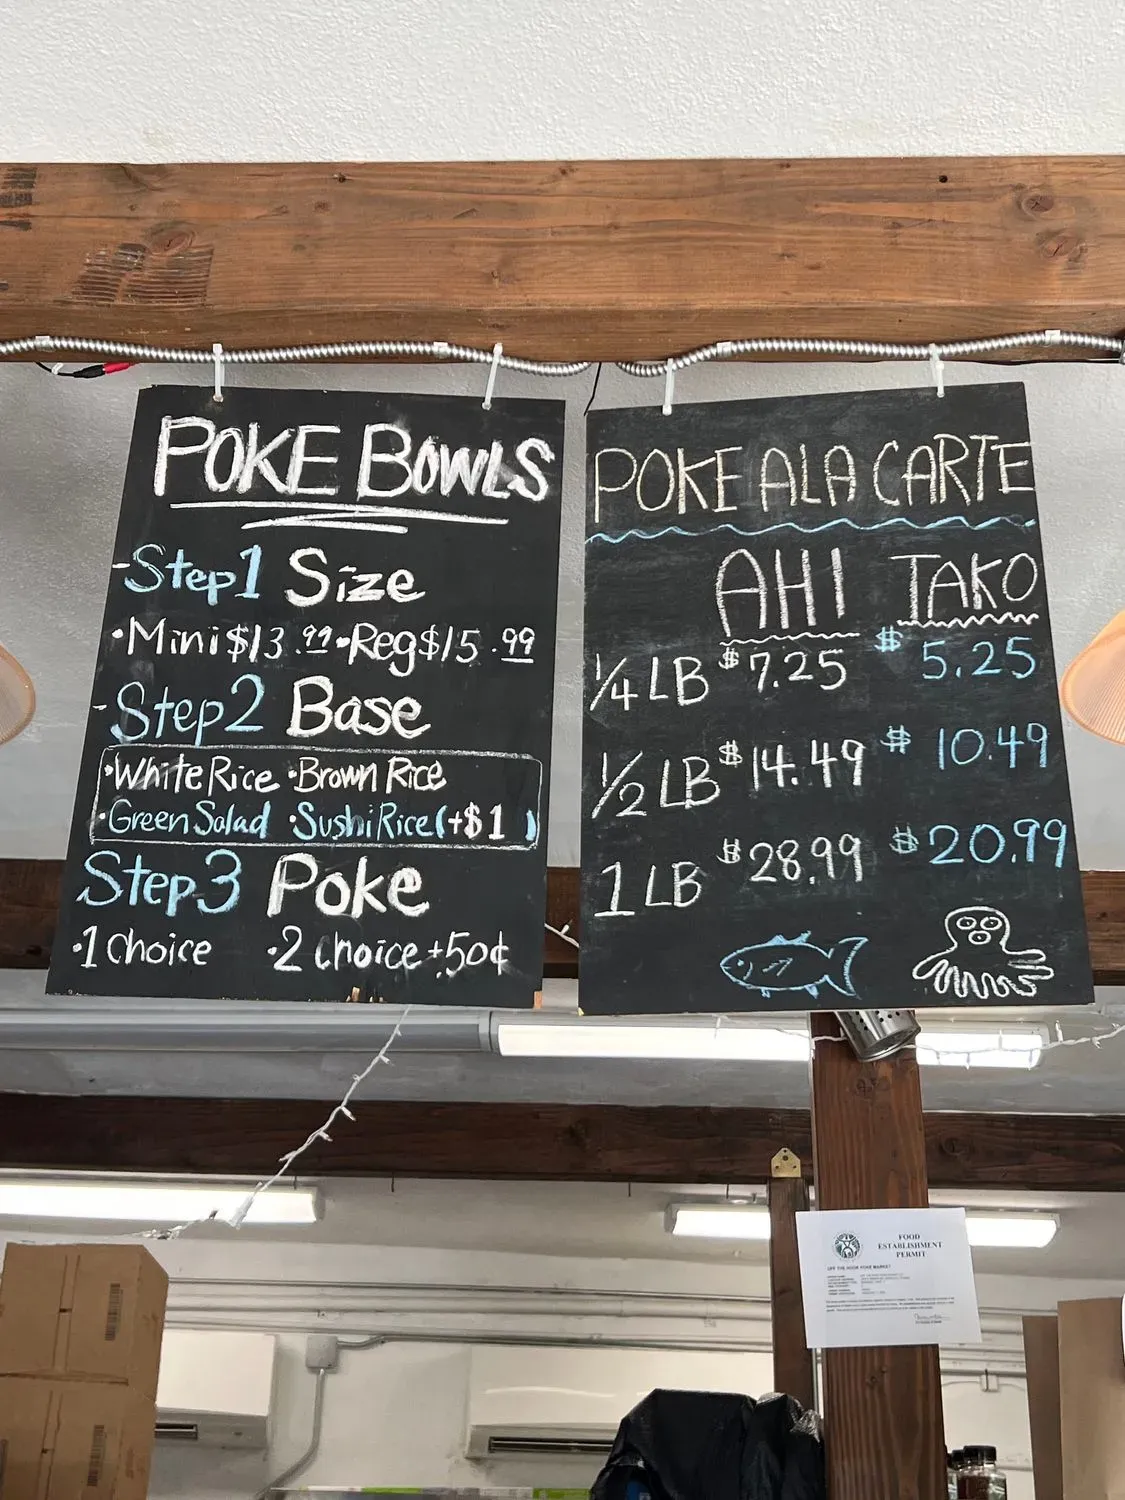 POKE BOWLS
-Step1 Size
•Mini $13.99 •Reg $15.99
-Step2 Base
•White Rice •Brown Rice
•Green Salad •Sushi Rice (+$1)
Step3 Poke
•1 Choice •2 Choice +.50¢
POKE ALA CARTE
AHI TAKO
1/4 LB $7.25 $5.25
1/2 LB $14.49 $10.49
1 LB $28.99 $20.99
FOOD
ESTABLISHMENT
PERMIT
OFF THE HOOK POKE MARKET